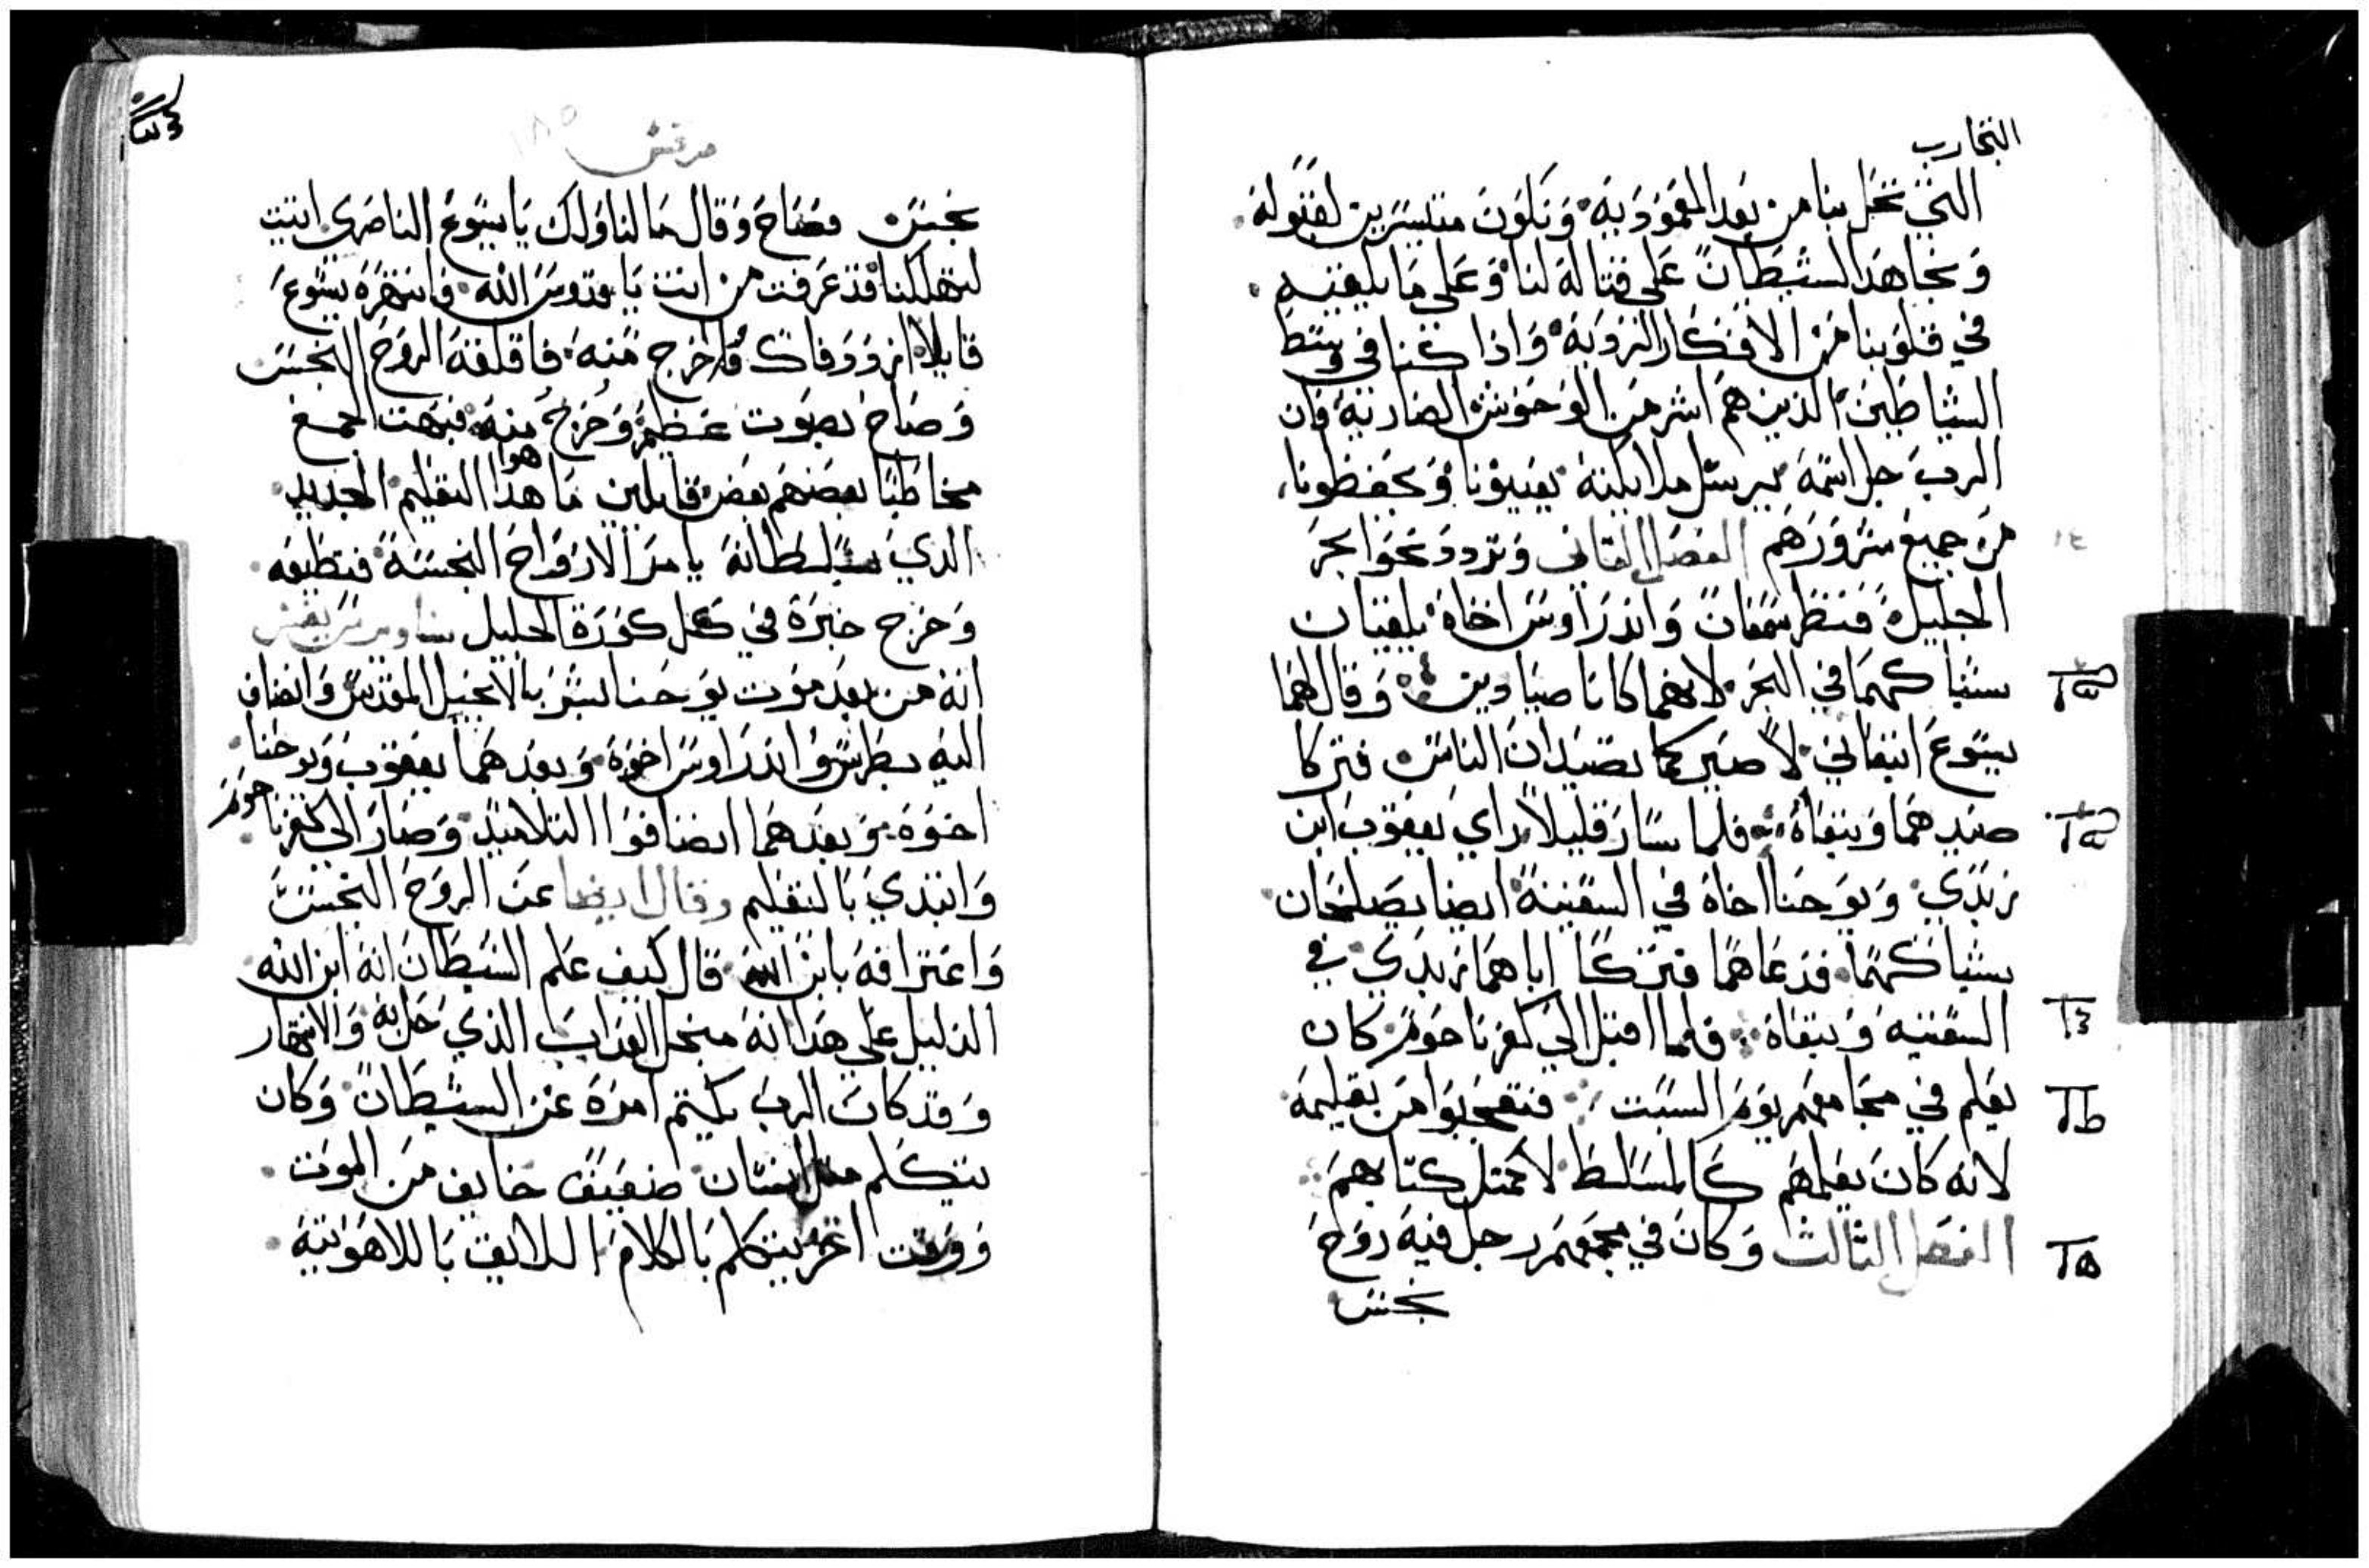 التجارب
التي تحل بنا من بعد المعمودية وَنكون متيسرين لقبوله
وَنجاهد الشيطان على قتاله لنا وَعلى ما يلقيه
في قلوبنا من الافكار الردية وَاذا كنا في وسط
الشياطين الذين هم اشر من الوحوش الضارية فان
الرب جل اسمه يرسل ملايكته يعينونا وَيحفظونا
من جميع شرورهم الفصل الثاني وَتردد نحو ابحر
الجليل فنظر سمعان وَاندراوس اخاه يلقيان
شباكهما في البحر لانهما كانا صيادين وَقال لهما
يسوع اتبعاني لاصيركما تصيدان الناس فتركا
صيدهما وَتبعاه فلما سار قليلاً راي يعقوب ابن
زبدي وَيوحنا اخاه في السفينة ايضا يصلحان
شباكهما فدعاهما فتركا اباهما زبدي في
السفينه وَتبعاه فلما اقبل الي كفرناحوم كان
يعلم في مجامعهم يوم السبت فتعجبوا من تعليمه
لانه كان يعلمهم كالمسلط لا كمثل كتابهم
الفصل الثالث وَكان في مجمعهم رجل فيه روح
نجس
مرقس
١٨٥
نجس فصاح وَقال ما لنا وَلك يا يسوع الناصري اتيت
لتهلكنا قد عرفت من انت يا قدوس الله فانتهره يسوع
قايلا ازدد فاك وَاخرج منه فاقلقه الروح النجس
وَصاح بصوت عظيم وَخرج منه فبهت الجمع
مخاطبا بعضهم بعض قايلين ما هو هذا التعليم الجديد
الذي بسلطانه يامر الارواح النجسة فتطيعه
وَخرج خبره في كل كورة الجليل
انه من بعد موت يوحنا بشر بالانجيل المقدس وَانضاف
اليه بطرس وَاندراوس اخوه وَبعدهما يعقوب وَيوحنا
اخوه وَبعدهما انضافوا التلاميذ وَصار الى كفرناحوم
وَابتدي بالتعليم وقال ايضا عن الروح النجس
وَاعترافه بابن الله قال كيف علم الشيطان انه ابن الله
الدليل على هذا انه من العذاب الذي حل به وَالانتهار
وَقد كان الرب يكتم امره عن الشيطان وَكان
يتكلم مثل انسان ضعيف خايف من الموت
وَوقت اخر يتكلم بالكلام اللايق باللاهوتية